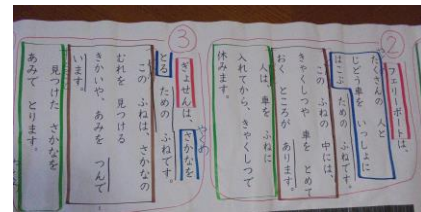 ②
フェリーボートは、
たくさんの 人と
じどう車を いっしょに
はこぶ ための ふねです。
この ふねの 中には、
きゃくしつや 車を とめて
おく ところが あります。
人は 車を ふねに
入れてから、きゃくしつで
休みます。
③
やくめ
ぎょせんは、さかなを
とる ための ふねです。
この ふねは、さかなの
むれを 見つける
きかいや、あみを つんで
います。
見つけた さかなを
あみで とります。